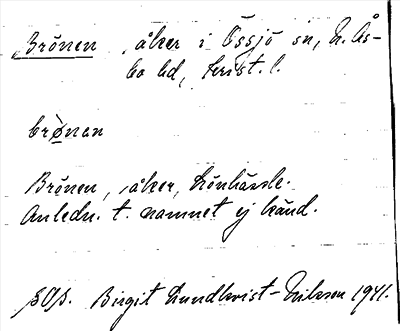 Brönen åker i Össjö sn, N. Ås-
bo hd, krist. l.
brønan
Brönen, åker, Lönhässle.
Anledn. t. namnet ej känd.
Birgit Lundkvist-Nilsson 1941.